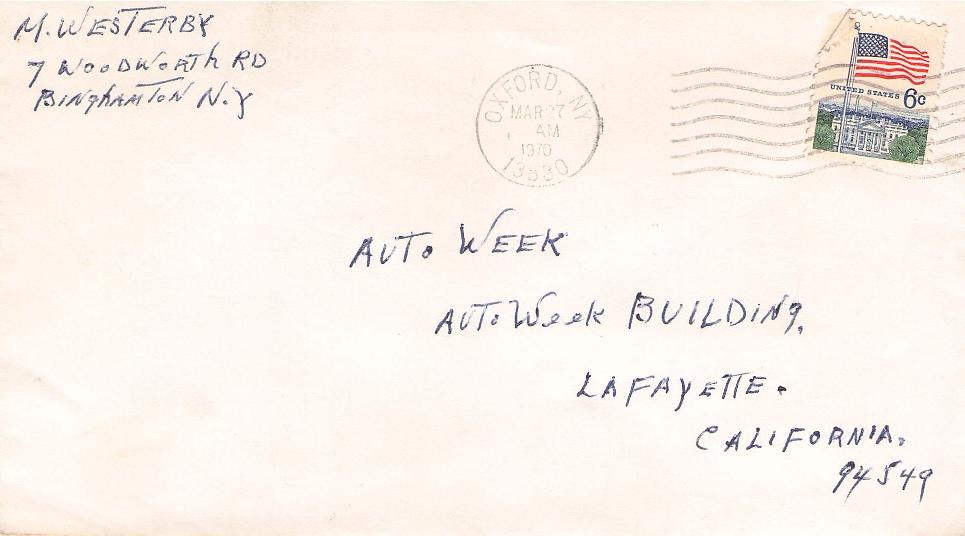 M. WESTERBY
7 WOODWORTH RD
BINGHAMTON N.Y
OXFORD, NY
MAR 27
AM
1970
13830
UNITED STATES 6c
AUTO WEEK
AUTO Week BUILDING.
LAFAYETTE.
CALIFORNIA.
94549